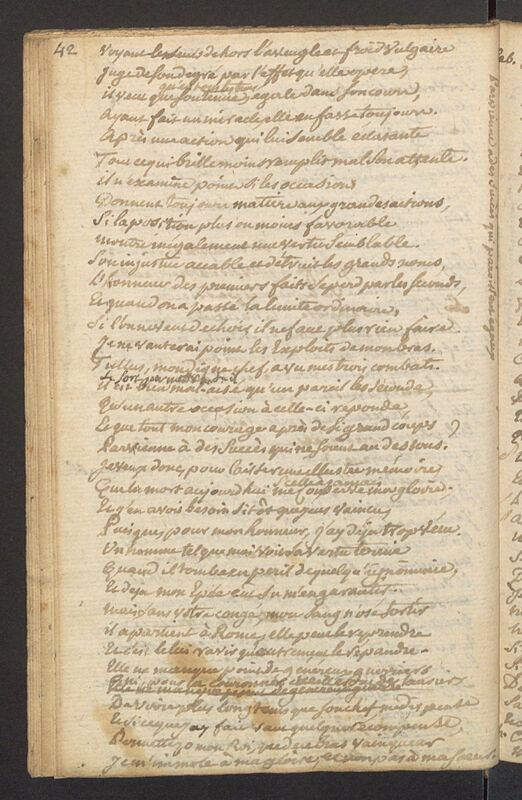 42
voyant le seul dehors l'aveugle et froid vulgaire
juge de son degré par l'effet qu'elle opere,
il veut que soutenue, egale dans son cours,
Ayant fait un miracle elle en fasse toujours.
Après une action qui lui semble eclatante
Tout ce qui brille moins remplit mal son attente.
il n'examine point si les occasions
Donnent toujours matiere aux grandes actions,
Si la position plus ou moins favorable
montre inégalement une vertu semblable.
Son injustice accable et detruit les grands noms,
L'honneur des premiers faits se perd par les seconds,
Et quand on a passé la limite ordinaire,
Si l'on ne veut dechoir il ne faut plus rien faire.
Je ne vanterai point les Exploits de mon bras.
Tullus, mon digne chef, a vu mes trois combats.
Le sort
il est bien mal-aisé qu'un pareil les seconde,
Qu'un autre occasion à celle-ci reponde,
Et que tout mon courage après de si grands coups
Parvienne à des succès qui ne soient au dessous.
Je veux donc, pour laisser une illustre memoire,
Que la mort aujourd'hui me conserve ma gloire.
Et j'en avois besoin sitôt que j'eus vaincu,
Puisque, pour mon honneur, j'ay déja trop vécu.
Un homme tel que moi voit sa vertu ternie
Quand il tombe en peril de quelqu'ignominie,
Et deja mon Epée eut su m'en garantir.
mais sans votre congé mon sang n'ose sortir
il apartient à Rome, elle peut le reprendre
Et c'est le lui ravir qu'autrement le repandre.
Elle ne manque point de genereux guerriers
Qui, pour la couronner
Elle ne manque point de genereux lauriers
Et si ce que j'ay fait vaut quelque recompense,
Permettez o mon Roi, que de ce bras vainqueur
Je m'immole à ma gloire, et non pas à ma soeur.